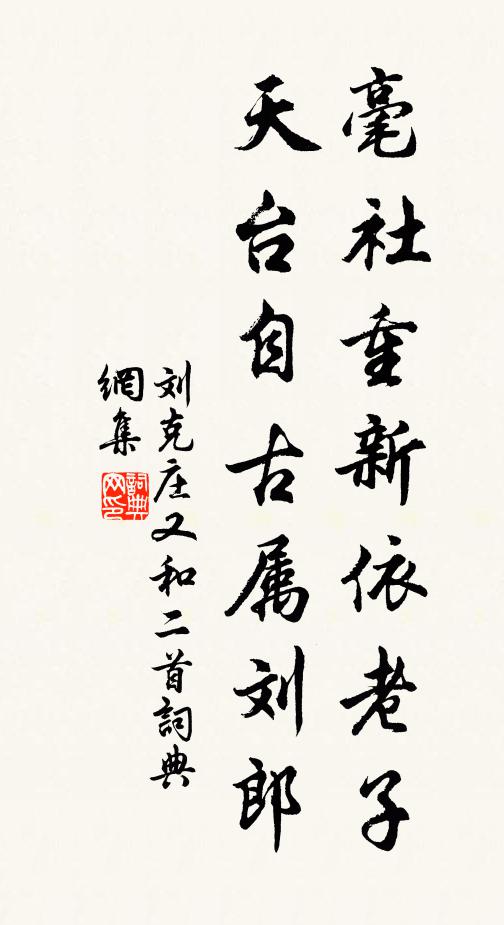 毫社重新依老子
天台自古属刘郎
刘克庄又和二首詞典
網集
詞典
网印